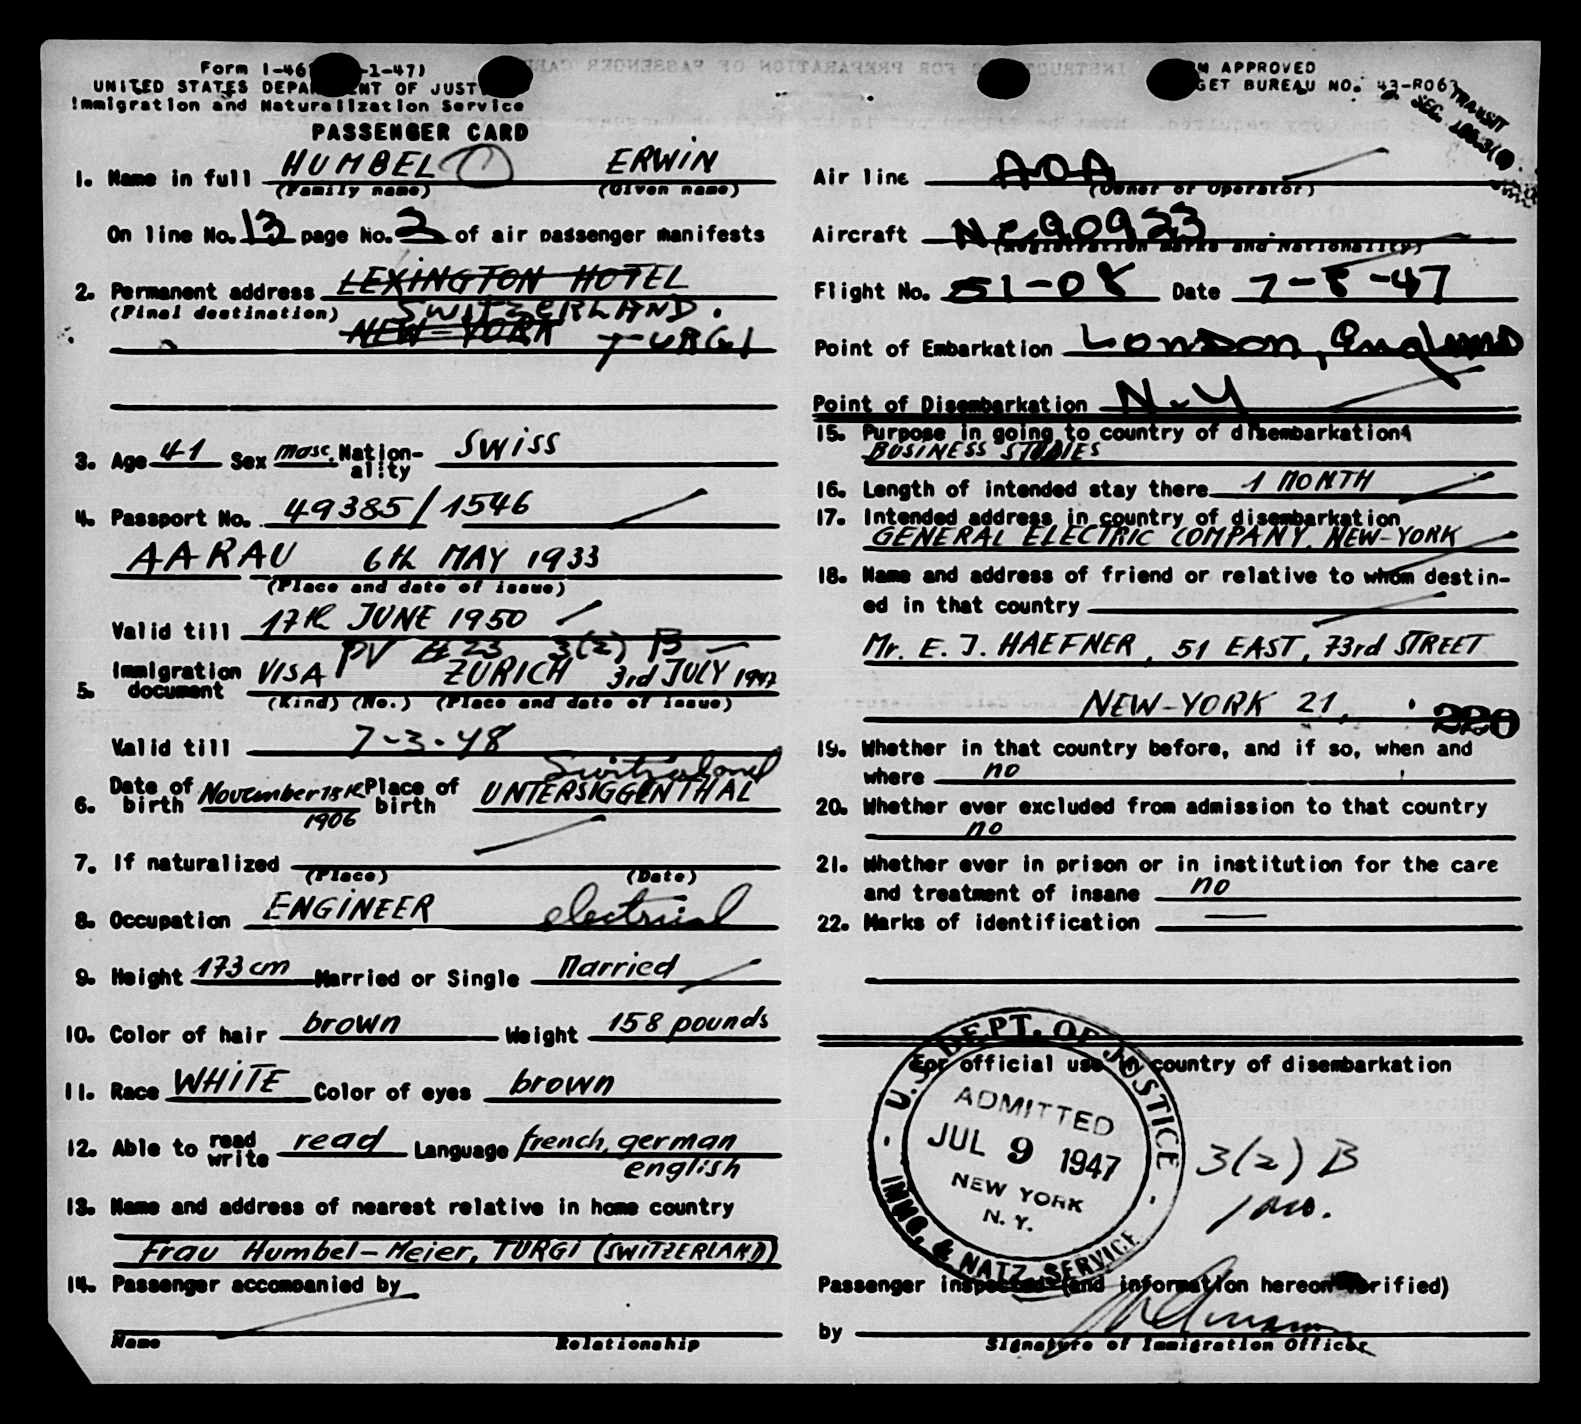 Form I-46 -1-47)
UNITED STATES DEPARTMENT OF JUSTICE
Immigration and Naturalization Service
PASSENGER CARD
1. Name in full HUMBEL ERWIN
(Family name) (Given name)
On line No. 13 page No. 2 of air passenger manifests
2. Permanent address LEXINGTON HOTEL
(Final destination) SWITZERLAND.
NEW-YORK TURGI
3. Age 41 Sex masc. Nation-ality SWISS
4. Passport No. 49385/1546
AARAU 6th MAY 1933
(Place and date of issue)
Valid till 17th JUNE 1950
PV # 23 3(2) B
5. Immigration document VISA ZURICH 3rd JULY 1947
(Kind) (No.) (Place and date of issue)
Valid till 7-3-48
Switzerland
6. Date of birth November 18th 1906 Place of birth UNTERSIGGENTHAL
7. If naturalized
(Place) (Date)
8. Occupation ENGINEER electrical
9. Height 173 cm Married or Single Married
10. Color of hair brown Weight 158 pounds
11. Race WHITE Color of eyes brown
12. Able to read write read Language french, german
english
13. Name and address of nearest relative in home country
Frau Humbel-Meier, TURGI (SWITZERLAND)
14. Passenger accompanied by
Name Relationship
FORM APPROVED
BUDGET BUREAU NO. 43-R063
TRANSIT
SEC.
Air line AOA
(Owner or Operator)
Aircraft NC90923
(Registration marks and Nationality)
Flight No. 51-08 Date 7-8-47
Point of Embarkation London, England
Point of Disembarkation N.Y
15. Purpose in going to country of disembarkation
BUSINESS STUDIES
16. Length of intended stay there 1 MONTH
17. Intended address in country of disembarkation
GENERAL ELECTRIC COMPANY, NEW-YORK
18. Name and address of friend or relative to whom destin-
ed in that country
Mr. E. J. HAEFNER, 51 EAST, 73rd STREET
NEW-YORK 21, 220
19. Whether in that country before, and if so, when and
where no
20. Whether ever excluded from admission to that country
no
21. Whether ever in prison or in institution for the care
and treatment of insane no
22. Marks of identification —
For official use in country of disembarkation
U.S. DEPT. OF JUSTICE
ADMITTED
JUL 9 1947
NEW YORK
N. Y.
IMMG. & NATZ. SERVICE
3(2) B
1 mo.
Passenger inspected (and information hereon verified)
by
Signature of Immigration Officer